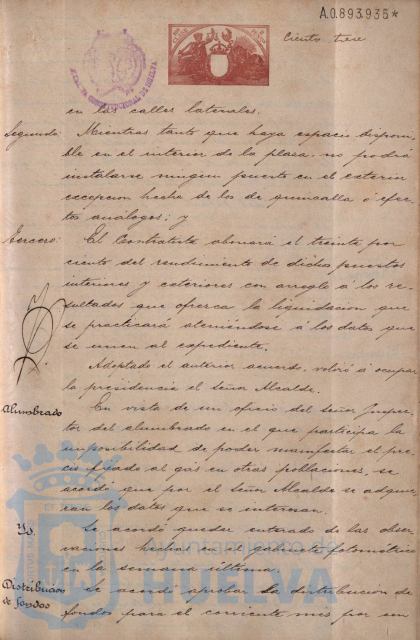 A.0.893.935*
Ciento trece
ALCALDIA CONSTITUCIONAL DE HUELVA
en las calles laterales.
Segundo: Mientras tanto que haya espacio disponi-
ble en el interior de la plaza, no podrá
instalarse ningun puesto en el exterior
excepcion hecha de los de quincalla ó efec-
tos análogos; y
Tercero: El Contratista abonará el treinta por
ciento del rendimiento de dichos puestos
interiores y exteriores con arreglo á los re-
sultados que ofrezca la liquidacion que
se practicará ateniéndose á los datos que
se unen al expediente.
Adoptado el anterior acuerdo, volvió á ocupar
la presidencia el señor Alcalde.
Alumbrado En vista de un oficio del señor Inspec-
tor del alumbrado en el que participa la
imposibilidad de poder manifestar el pre-
cio fijado al gas en otras poblaciones, se
acordó que por el Señor Alcalde se adquie-
ran los datos que se interesan.
Yd. Se acordó quedar enterado de las obser-
vaciones hechas en el gabinete fotométrico
en la semana última.
Distribucion Se acordó aprobar la distribucion de
de fondos fondos para el corriente mes por un
Ayuntamiento de
HUELVA